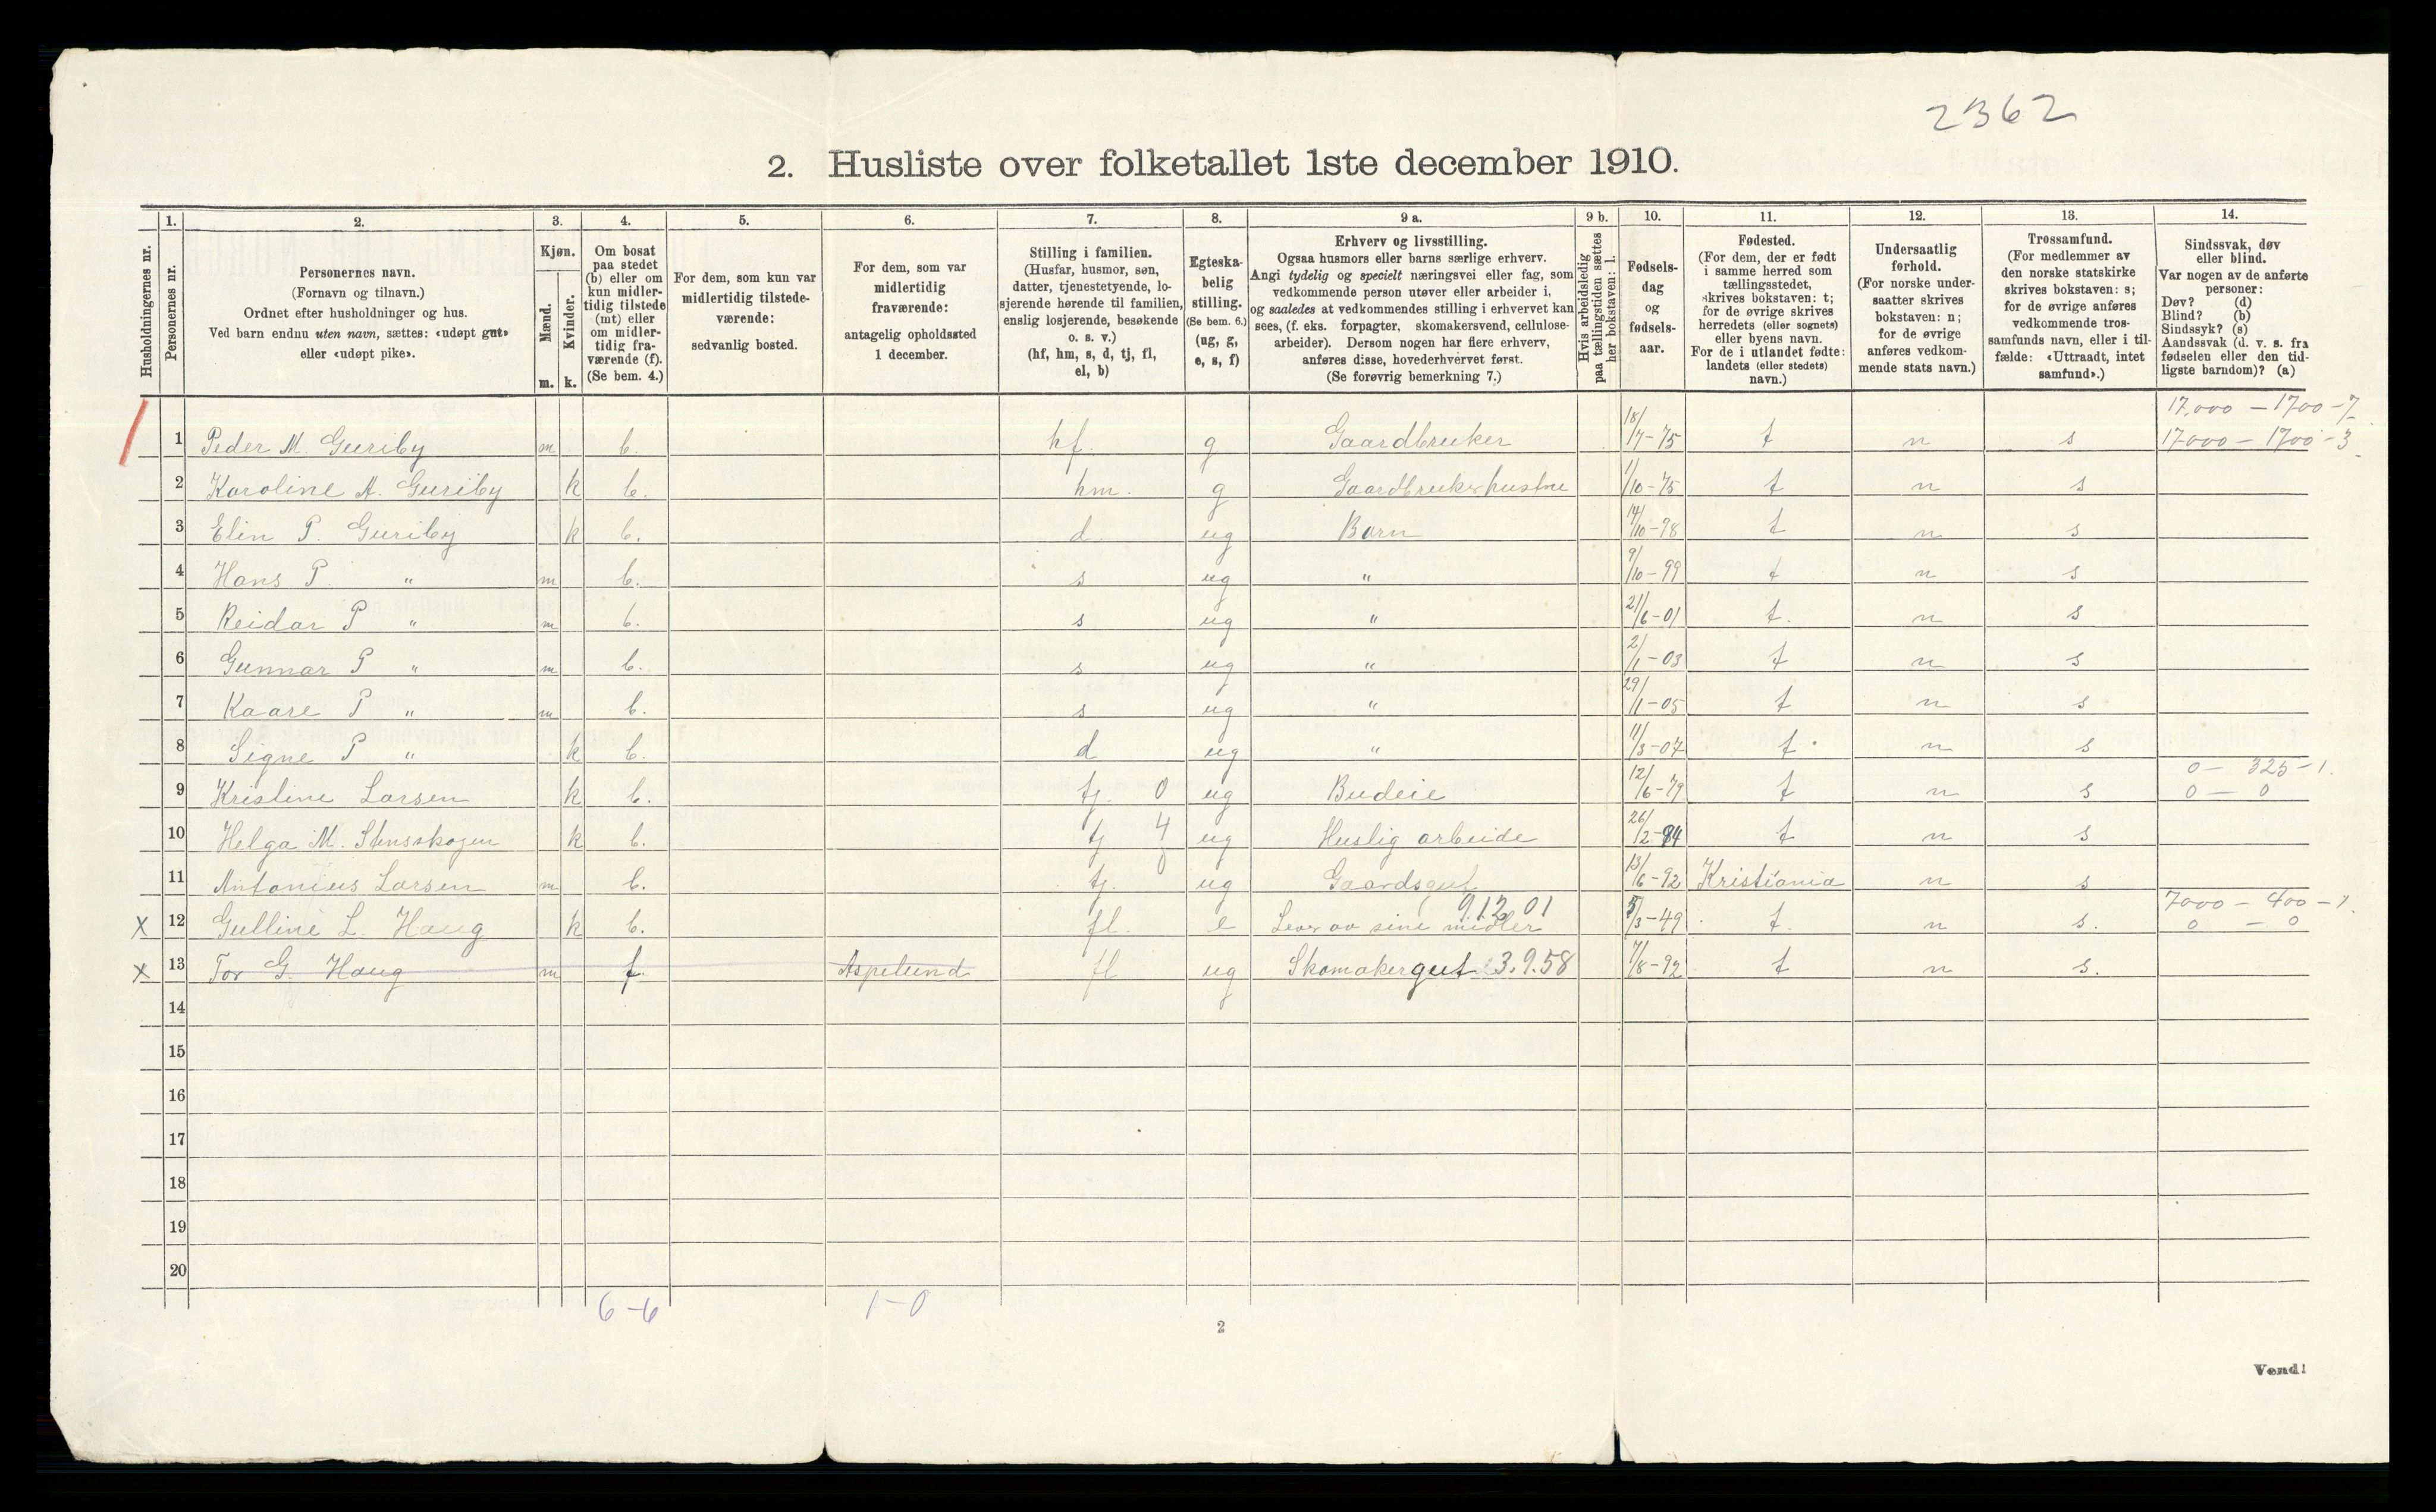 2362
2. Husliste over folketallet 1ste december 1910.
Husholdningernes nr.
1. Personernes nr.
2. Personernes navn. (Fornavn og tilnavn.) Ordnet efter husholdninger og hus. Ved barn endnu uten navn, sættes: «udøpt gut» eller «udøpt pike».
3. Kjøn. Mænd. m. Kvinder. k.
4. Om bosat paa stedet (b) eller om kun midlertidig tilstede (mt) eller om midlertidig fraværende (f). (Se bem. 4.)
5. For dem, som kun var midlertidig tilstedeværende: sedvanlig bosted.
6. For dem, som var midlertidig fraværende: antagelig opholdssted 1 december.
7. Stilling i familien. (Husfar, husmor, søn, datter, tjenestetyende, losjerende hørende til familien, enslig losjerende, besøkende o. s. v.) (hf, hm, s, d, tj, fl, el, b)
8. Egteskabelig stilling. (Se bem. 6.) (ug, g, e, s, f)
9 a. Erhverv og livsstilling. Ogsaa husmors eller barns særlige erhverv. Angi tydelig og specielt næringsvei eller fag, som vedkommende person utøver eller arbeider i, og saaledes at vedkommendes stilling i erhvervet kan sees, (f. eks. forpagter, skomakersvend, cellulosearbeider). Dersom nogen har flere erhverv, anføres disse, hovederhvervet først. (Se forøvrig bemerkning 7.)
9 b. Hvis arbeidsledig paa tællingstiden sættes her bokstaven: l.
10. Fødselsdag og fødselsaar.
11. Fødested. (For dem, der er født i samme herred som tællingsstedet, skrives bokstaven: t; for de øvrige skrives herredets (eller sognets) eller byens navn. For de i utlandet fødte: landets (eller stedets) navn.)
12. Undersaatlig forhold. (For norske undersaatter skrives bokstaven: n; for de øvrige anføres vedkommende stats navn.)
13. Trossamfund. (For medlemmer av den norske statskirke skrives bokstaven: s; for de øvrige anføres vedkommende trossamfunds navn, eller i tilfælde: «Uttraadt, intet samfund».)
14. Sindssvak, døv eller blind. Var nogen av de anførte personer: Døv? (d) Blind? (b) Sindssyk? (s) Aandssvak (d. v. s. fra fødselen eller den tidligste barndom)? (a)
17,000 – 1700 – 7
1 Peder M. Guriby m b. hf. g Gaardbruker 18/7-75 t n s 17000 – 1700 – 3
2 Karoline A. Guriby k b. hm. g Gaardbrukerhustru 1/10-75 t n s
3 Elin P. Guriby k b. d. ug Barn 14/10-98 t n s
4 Hans P. " m b. s ug " 9/10-99 t n s
5 Reidar P " m b. s ug " 21/6-01 t. n s
6 Gunnar P " m b. s ug " 2/1-03 t n s
7 Kaare P " m b. s ug " 29/1-05 t n s
8 Signe P " k b. d ug " 11/3-07 t n s
0 – 325 – 1.
9 Kristine Larsen k b. tj. 0 ug Budeie 12/6-79 t n s 0 – 0
10 Helga M. Stensskogen k b. tj 4 ug Huslig arbeide 26/2-84 t n s
11 Antonius Larsen m b. tj. 0 ug Gaardsgut 13/6-92 Kristiania n s
9.12.01 7000 – 400 – 1.
X 12 Gulline L. Haug k b. fl. e Lever av sine midler 5/3-49 t. n s. 0 – 0
X 13 Tor G. Haug m f. Aspelund fl ug Skomakergut 3.9.58 7/8-92 t n s.
14
15
16
17
18
19
20
6 – 6 1 – 0
2
Vend!